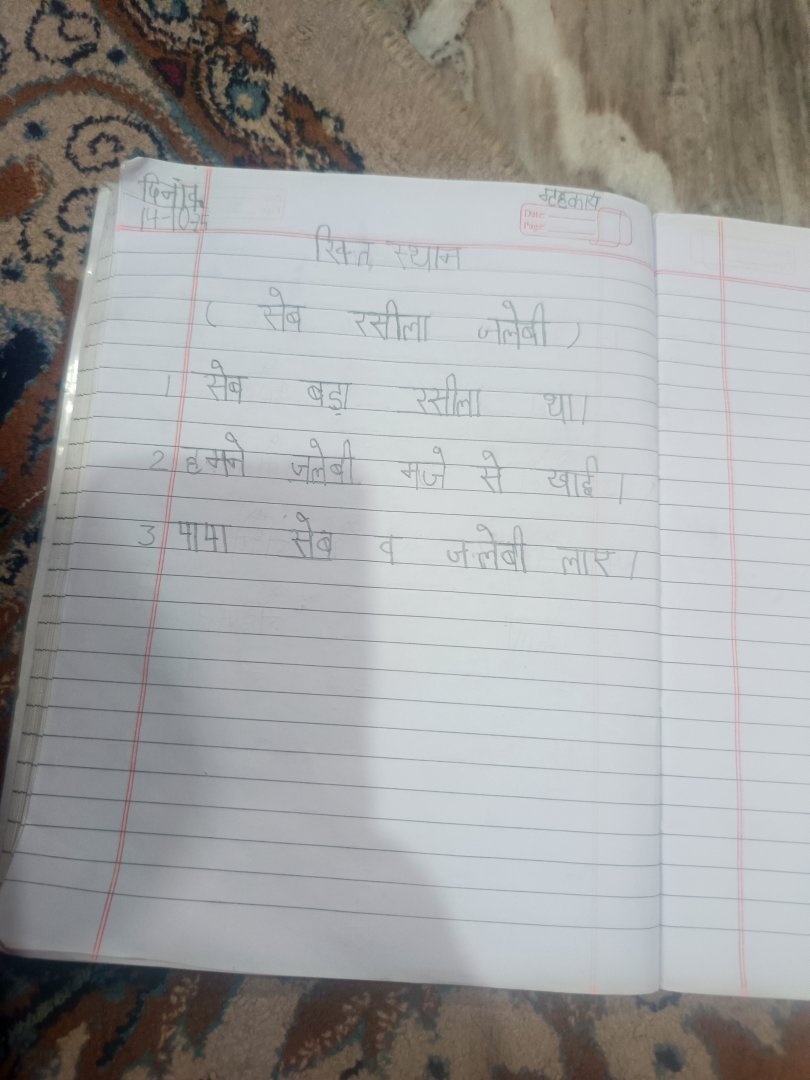 दिनाँक
गृहकार्य
14-10-25
Date:
Page:
रिक्त स्थान
( सेब रसीला जलेबी )
1 सेब बड़ा रसीला था।
2 हमने जलेबी मजे से खाई।
3 पापा सेब व जलेबी लाए।